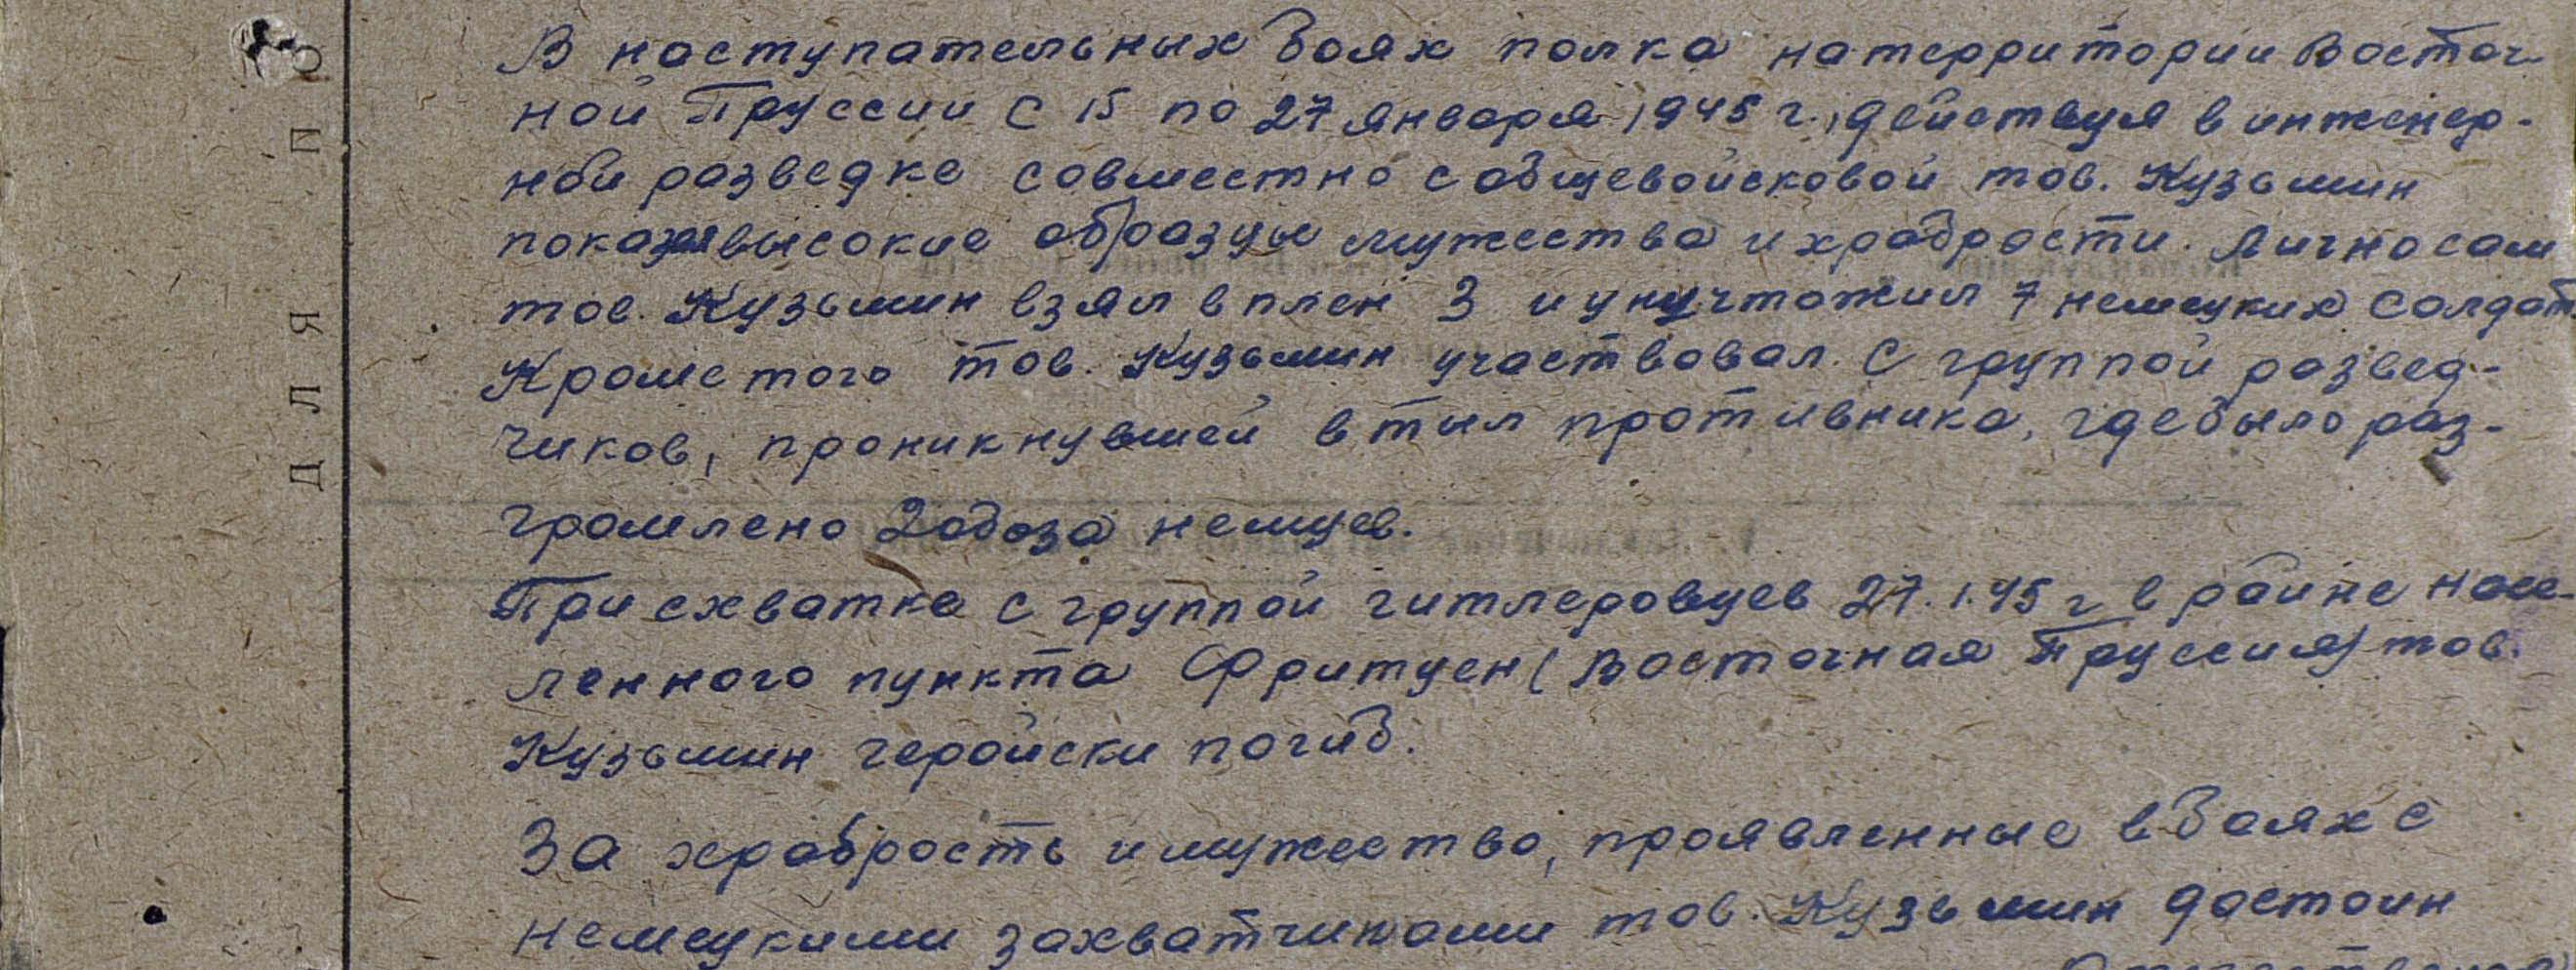 В наступательных боях полка на территории Восточ-
ной Пруссии с 15 по 27 января 1945 г., действуя в инженер-
ной разведке совместно с общевойсковой тов. Кузьмин
показал высокие образцы мужества и храбрости. Лично сам
тов. Кузьмин взял в плен 3 и уничтожил 7 немецких солдат.
Кроме того тов. Кузьмин участвовал с группой развед-
чиков, проникнувшей в тыл противника, где было раз-
громлено 2 обоза немцев.
При схватке с группой гитлеровцев 27.1.45 г в райне насе-
ленного пункта Фритцен (Восточная Пруссия) тов.
Кузьмин геройски погиб.
За храбрость и мужество, проявленные в боях с
немецкими захватчиками тов. Кузьмин достоин
ДЛЯ ПО